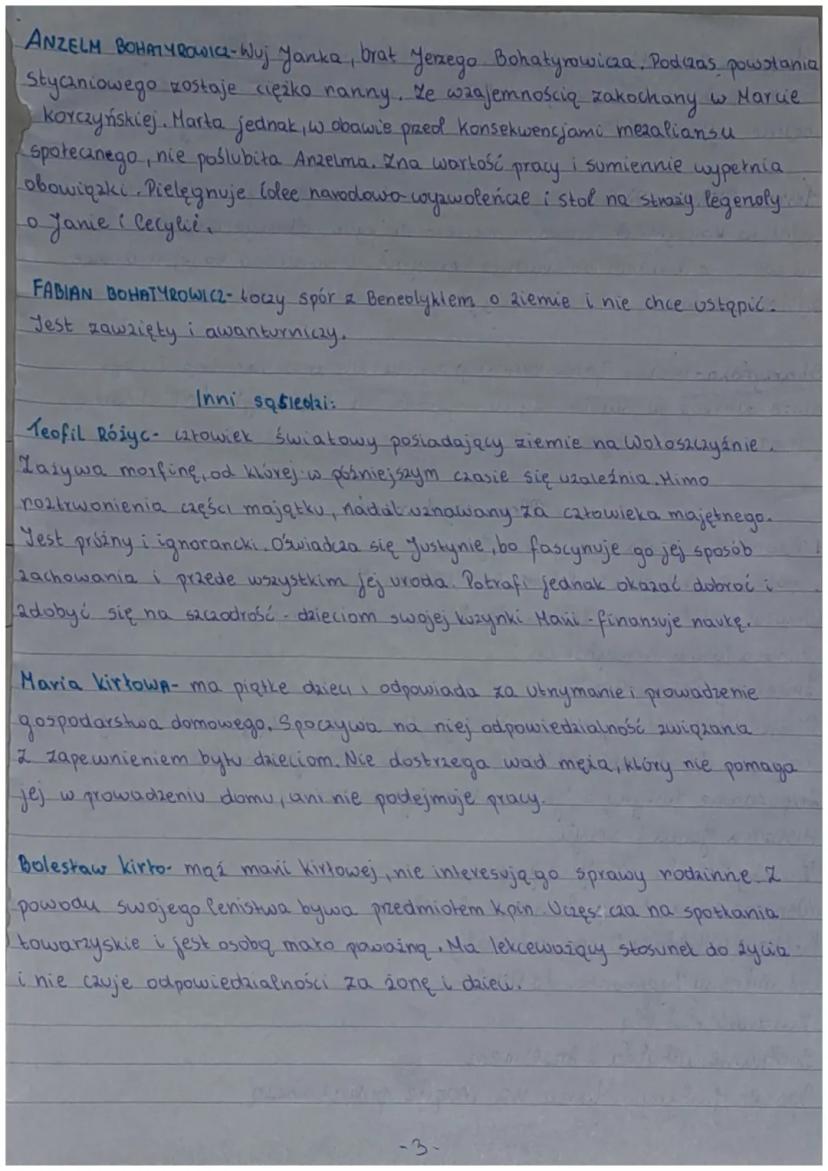 ANZELM BOHATYROWICZ - Wuj Janka, brat Jerzego Bohatyrowicza. Podczas powstania
Styczniowego zostaje ciężko ranny. Ze wzajemnością zakochany w Marcie
Korczyńskiej. Marta jednak, w obawie przed konsekwencjami mezaliansu
społecznego, nie poślubiła Anzelma. Zna wartość pracy i sumiennie wypełnia
obowiązki. Pielęgnuje idee narodowo-wyzwoleńcze i stoi na straży legendy
o Janie i Cecylii.
FABIAN BOHATYROWICZ - toczy spór z Benedyktem o ziemie i nie chce ustąpić.
Jest zawzięty i awanturniczy.
Inni sąsiedzi:
Teofil Różyc - człowiek światowy posiadający ziemie na Wołoszczyźnie.
Zażywa morfinę, od której w późniejszym czasie się uzależnia. Mimo
roztrwonienia części majątku, nadal uznawany za człowieka majętnego.
Jest próżny i ignorancki. Oświadcza się Justynie, bo fascynuje go jej sposób
zachowania i przede wszystkim jej uroda. Potrafi jednak okazać dobroć i
zdobyć się na szczodrość - dzieciom swojej kuzynki Marii - finansuje naukę.
Maria Kirłowa - ma piątkę dzieci, odpowiada za utrzymanie i prowadzenie
gospodarstwa domowego. Spoczywa na niej odpowiedzialność związana
z zapewnieniem bytu dzieciom. Nie dostrzega wad męża, który nie pomaga
jej w prowadzeniu domu, ani nie podejmuje pracy.
Bolesław Kirło - mąż Marii Kirłowej, nie interesują go sprawy rodzinne. Z
powodu swojego lenistwa bywa przedmiotem kpin. Uczęszcza na spotkania
towarzyskie i jest osobą mało poważną. Ma lekceważący stosunek do życia
i nie czuje odpowiedzialności za żonę i dzieci.
-3-